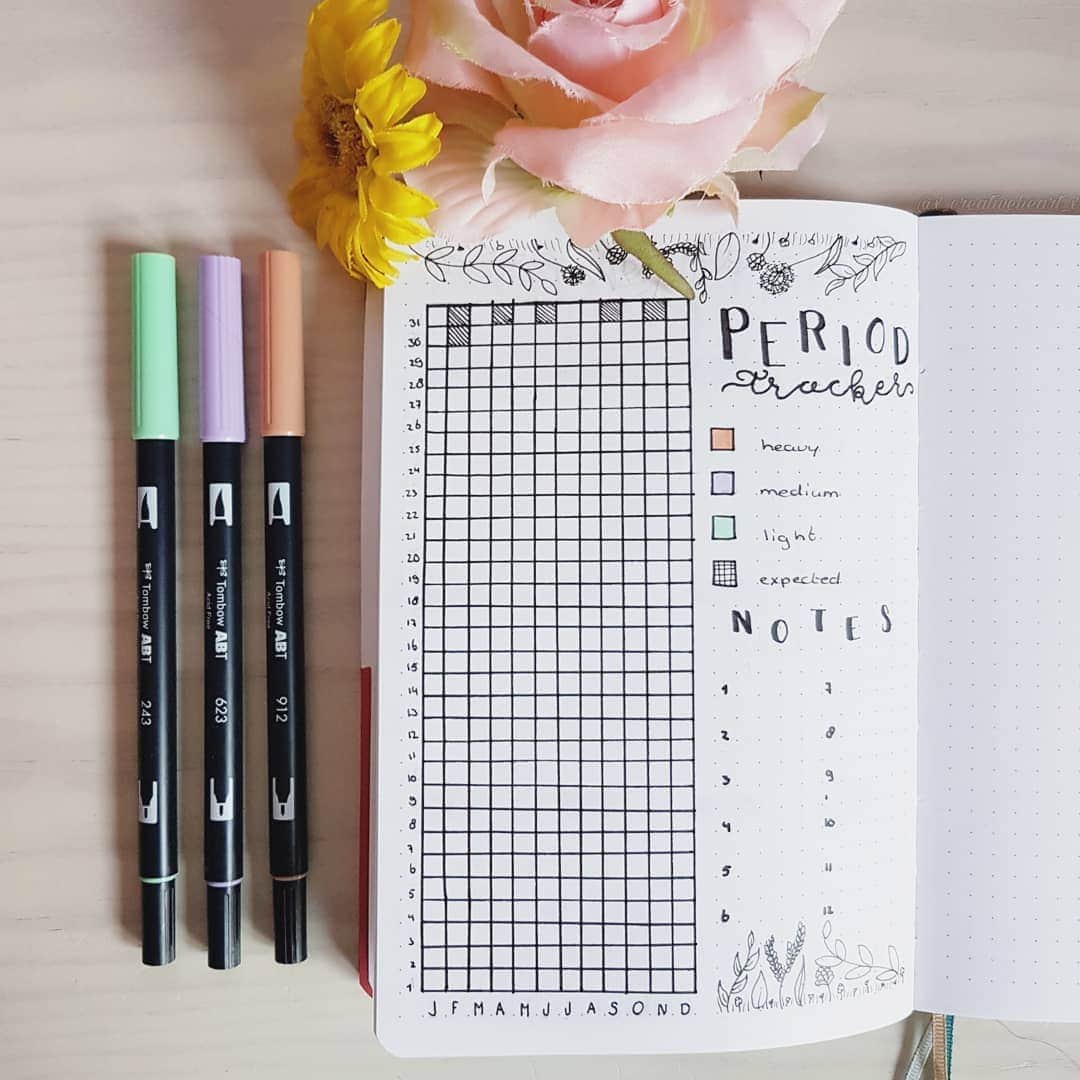 @x_creativeheart_x
PERIOD
tracker
heavy
medium
light
expected
NOTES
1 7
2 8
3 9
4 10
5 11
6 12
31
30
29
28
27
26
25
24
23
22
21
20
19
18
17
16
15
14
13
12
11
10
9
8
7
6
5
4
3
2
1
J F M A M J J A S O N D
Tombow ABT
Acid Free
243
Tombow ABT
Acid Free
623
Tombow ABT
Acid Free
912